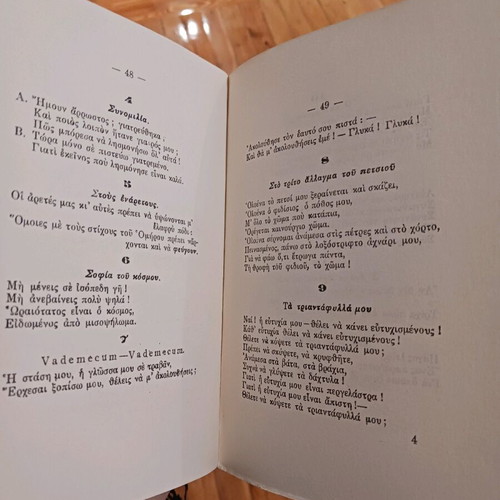 — 48 —
4
Συνομιλία.
Α. Ἤμουν ἄρρωστος; γιατρεύθηκα;
Καὶ ποιὸς λοιπὸν ἤτανε γιατρός μου;
Πῶς μπόρεσα νὰ λησμονήσω ὅλ’ αὐτά!
Β. Τώρα μόνο σὲ πιστεύω γιατρεμένο.
Γιατὶ ἐκεῖνος ποὺ λησμόνησε εἶναι καλά.
5
Στοὺς ἐνάρετους.
Οἱ ἀρετές μας κι’ αὐτὲς πρέπει νὰ ὑψώνονται μ’
ἐλαφρὸ πόδι:
Ὅμοιες μὲ τοὺς στίχους τοῦ Ὁμήρου πρέπει νἄρ-
χονται καὶ νὰ φεύγουν.
6
Σοφία τοῦ κόσμου.
Μὴ μένεις σὲ ἰσόπεδη γῆ!
Μὴ ἀνεβαίνεις πολὺ ψηλά!
Ὡραιότατος εἶναι ὁ κόσμος,
Εἰδωμένος ἀπὸ μισοψήλωμα.
7
Vademecum—Vademecum.
Ἡ στάση μου, ἡ γλῶσσα μου σὲ τραβᾶν,
Ἔρχεσαι ξοπίσω μου, θέλεις νὰ μ’ ἀκολουθήσεις;
— 49 —
Ἀκολούθησε τὸν ἑαυτό σου πιστά: —
Καὶ θὰ μ’ ἀκολουθήσεις ἐμέ! — Γλυκά! Γλυκά!
8
Στὸ τρίτο ἄλλαγμα τοῦ πετσιοῦ
Ὁλοένα τὸ πετσί μου ξεραίνεται καὶ σκάζει,
Ὁλοένα ὁ φιδίσιος ὁ πόθος μου,
Μ’ ὅλο τὸ χῶμα ποὺ κατάπια,
Ὀρέγεται καινούργιο χῶμα.
Ὁλοένα σύρνομαι ἀνάμεσα στὶς πέτρες καὶ στὸ χόρτο,
Πεινασμένος, πάνω στὸ λοξόστριφτο ἀχνάρι μου,
Γιὰ νὰ φάω ὅ,τι ἔτρωγα πάντα,
Τὴ θροφὴ τοῦ φιδιοῦ, τὸ χῶμα!
9
Τὰ τριαντάφυλλά μου
Ναί! ἡ εὐτυχία μου — θέλει νὰ κάνει εὐτυχισμένους!
Κάθ’ εὐτυχία θέλει νὰ κάνει εὐτυχισμένους!
Θέλετε νὰ κόψετε τὰ τριαντάφυλλά μου;
Πρέπει νὰ σκύψετε, νὰ κρυφθῆτε,
Ἀνάμεσα στὰ βάτα, στὰ βράχια,
Συχνὰ νὰ γλύφετε τὰ δάχτυλα!
Γιατὶ ἡ εὐτυχία μου εἶναι περγελάστρα!
Γιατὶ ἡ εὐτυχία μου εἶναι ἄπιστη! —
Θέλετε νὰ κόψετε τὰ τριαντάφυλλά μου;
4